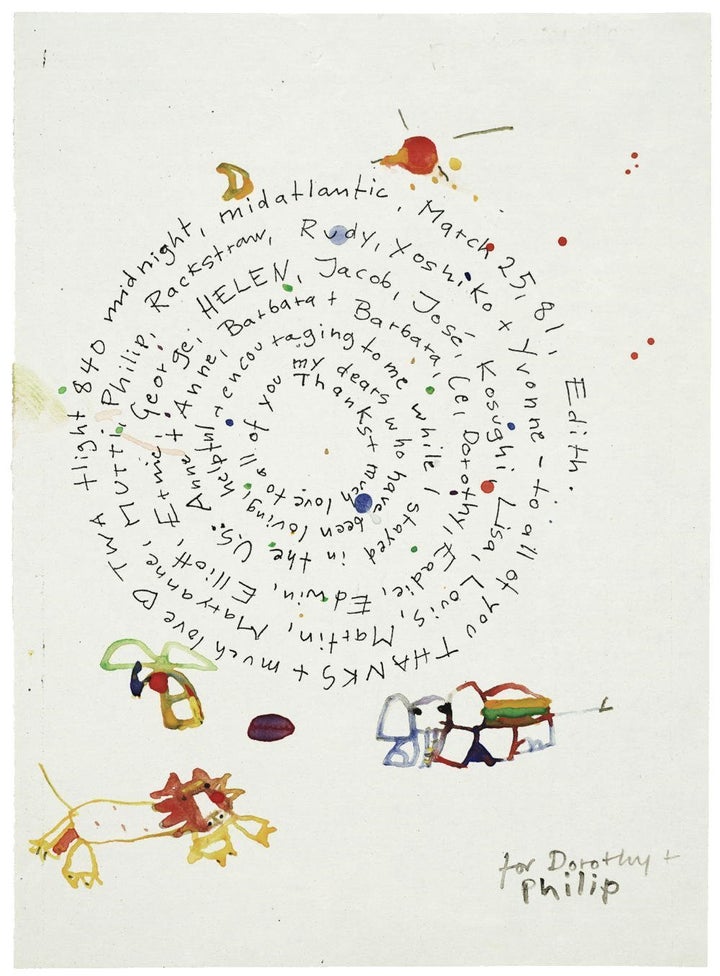 Thanks + much love to all of you my dears who have been loving, helpful + encouraging to me while I stayed in the U.S. Anne + Anne, Barbara + Barbara, Cei, Dorothy, Eadie, Edwin, Elliott, Ernie, George, HELEN, Jacob, José, Kosughi, Lisa, Louis, Martin, Maryanne, Mutti, Philip, Rackstraw, Rudy, Yoshiko + Yvonne – to all of you THANKS + much love ♡ TWA flight 840 midnight, midatlantic, March 25, 81, Edith.
for Dorothy +
Philip